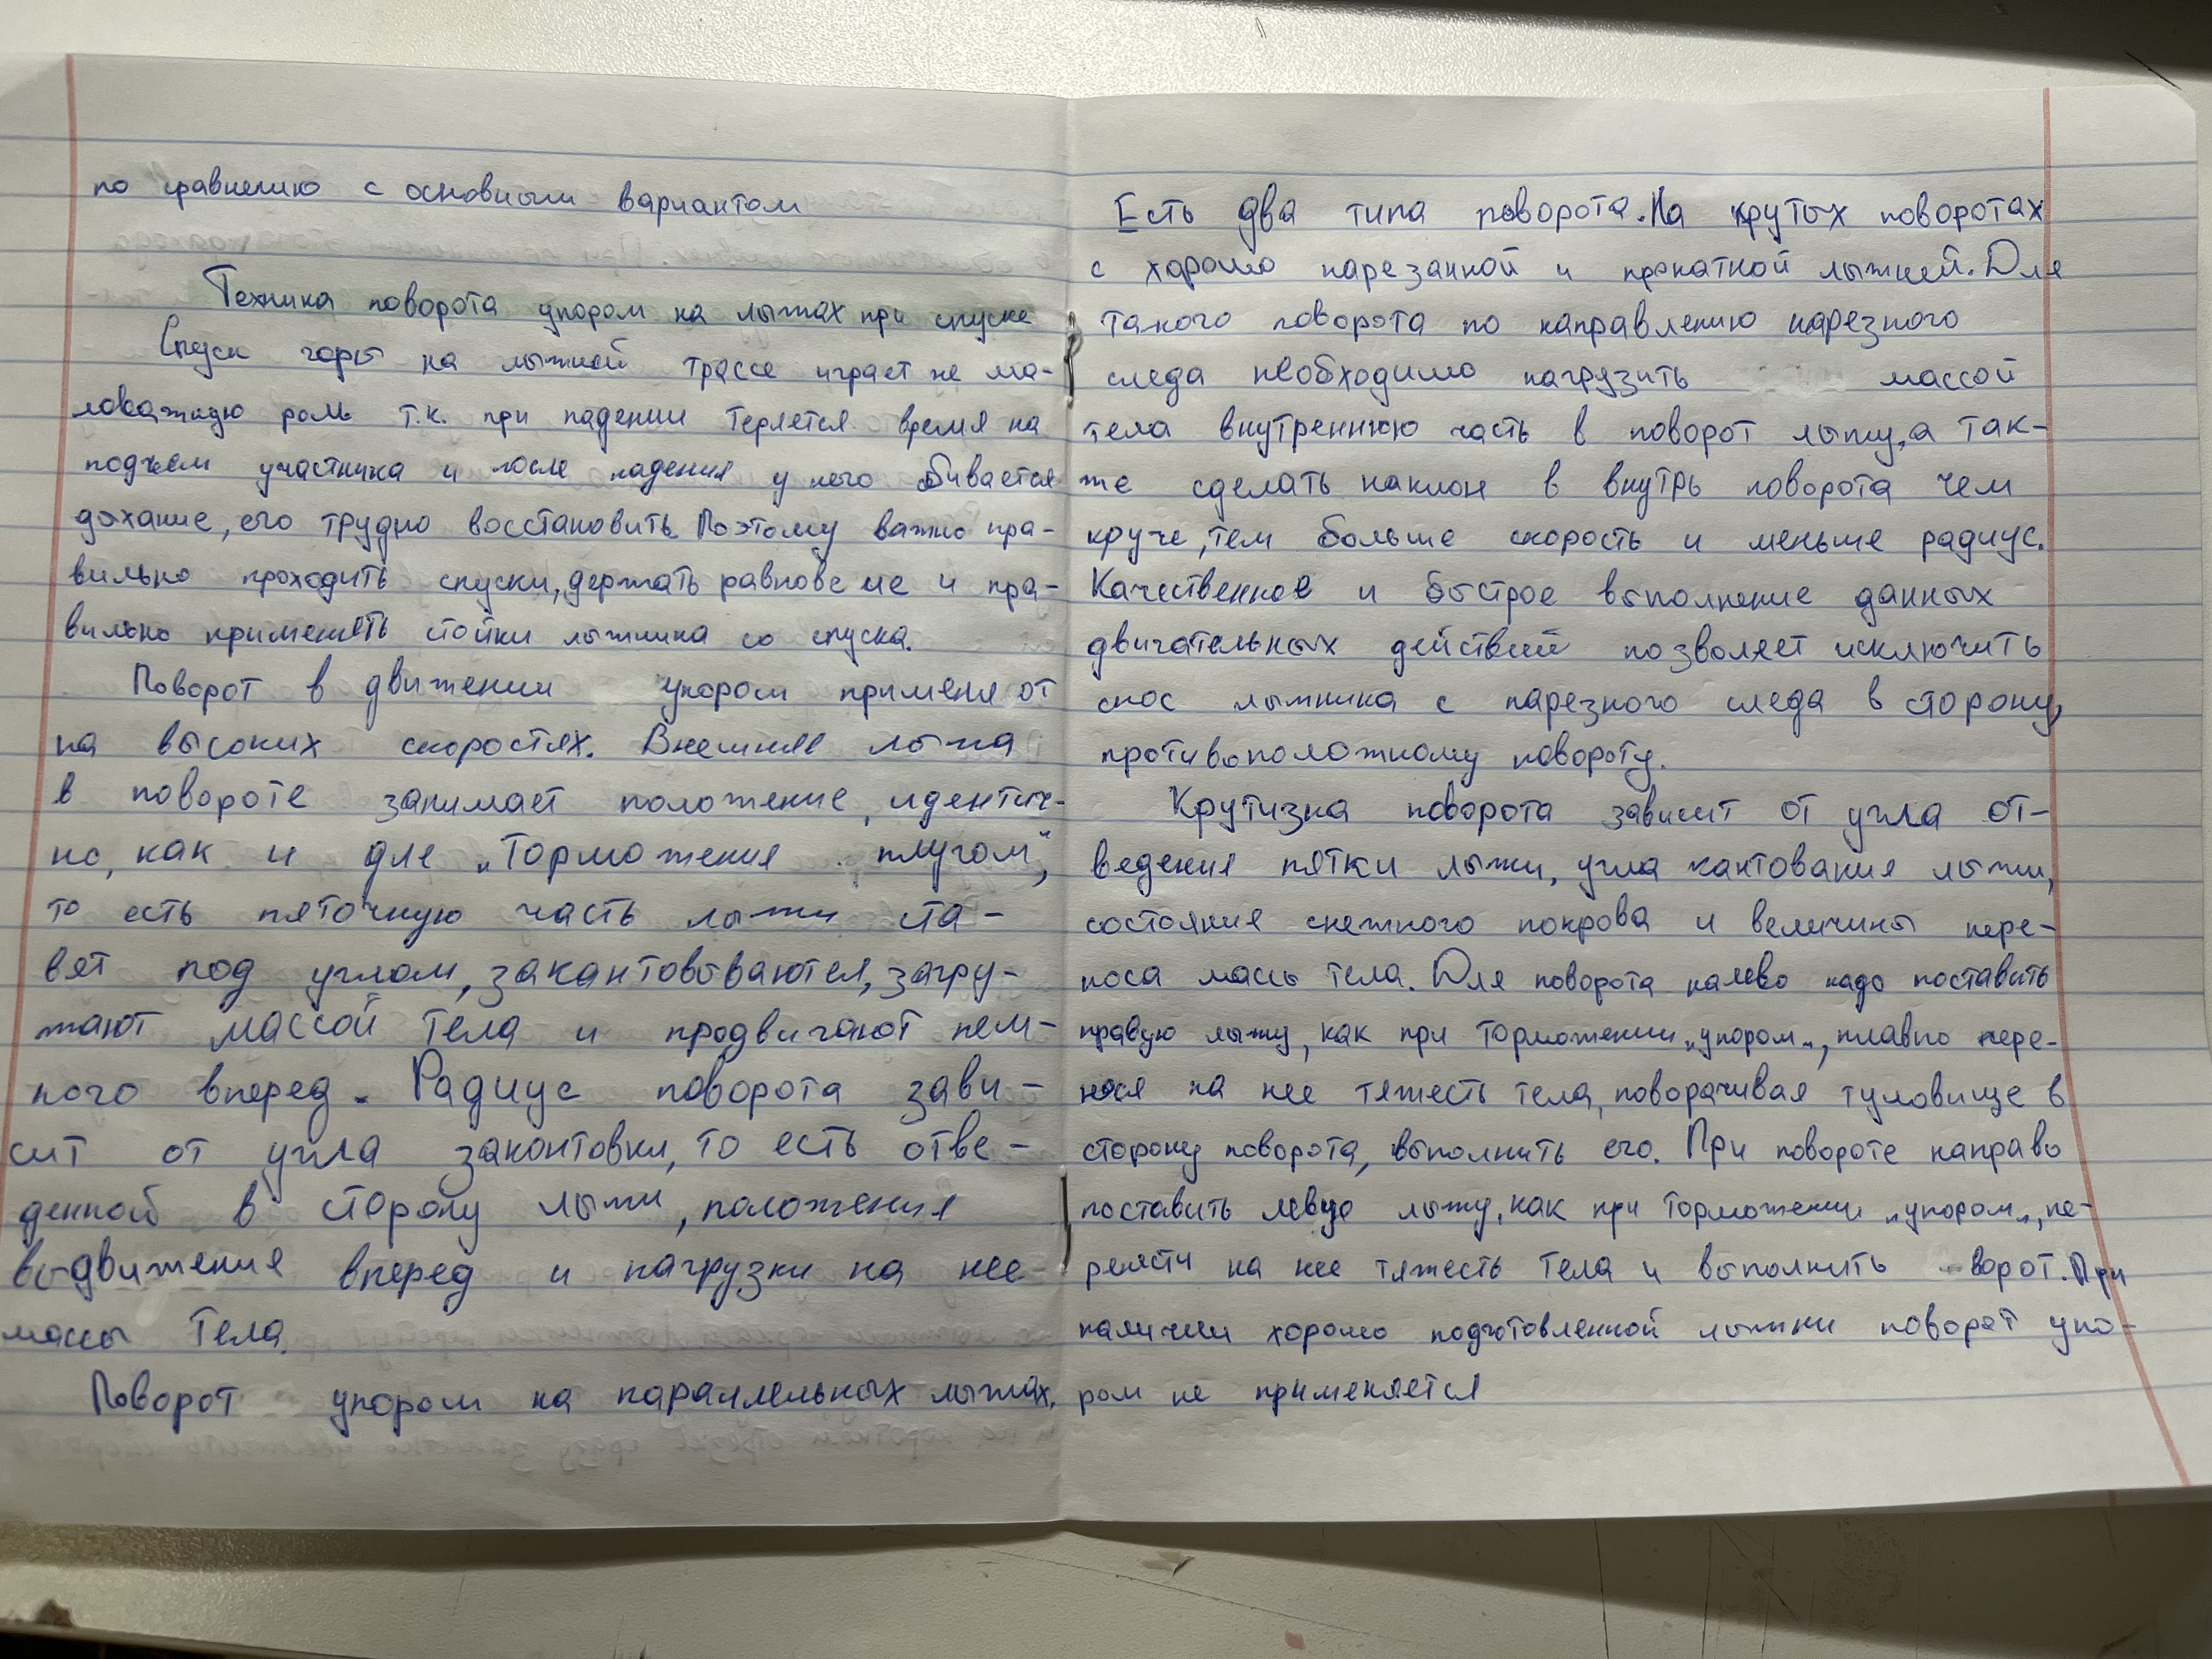 по сравнению с основным вариантом
Техника поворота упором на лыжах при спуске
Спуск горы на лыжной трассе играет не ма-
ловажную роль т.к. при падении теряется время на
подъем участника и после падения у него сбивается
дыхание, его трудно восстановить. Поэтому важно пра-
вильно проходить спуски, держать равновесие и пра-
вильно применять стойки лыжника со спуска.
Поворот в движении упором применяют
на высоких скоростях. Внешняя лыжа
в повороте занимает положение, идентич-
но, как и для „Торможения плугом",
то есть пяточную часть лыжи ста-
вят под углом, закантовываются, загру-
жают массой тела и продвигают нем-
ного вперед. Радиус поворота зави-
сит от угла закантовки, то есть отве-
денной в сторону лыжи, положения
выдвижения вперед и нагрузки на нее
массы тела.
Поворот упором на параллельных лыжах.
Есть два типа поворота. На крутых поворотах
с хорошо нарезанной и прокатной лыжней. Для
такого поворота по направлению нарезного
следа необходимо нагрузить массой
тела внутреннюю часть в поворот лыжу, а так-
же сделать наклон в внутрь поворота чем
круче, тем больше скорость и меньше радиус.
Качественное и быстрое выполнение данных
двигательных действий позволяет исключить
снос лыжника с нарезного следа в сторону,
противоположному повороту.
Крутизна поворота зависит от угла от-
ведения пятки лыжи, угла кантования лыжи,
состояния снежного покрова и величины пере-
носа массы тела. Для поворота налево надо поставить
правую лыжу, как при торможении „упором„, плавно пере-
нося на нее тяжесть тела, поворачивая туловище в
сторону поворота, выполнить его. При повороте направо
поставить левую лыжу, как при торможении „упором„, пе-
ренести на нее тяжесть тела и выполнить ворот. При
наличии хорошо подготовленной лыжни поворот упо-
ром не применяется